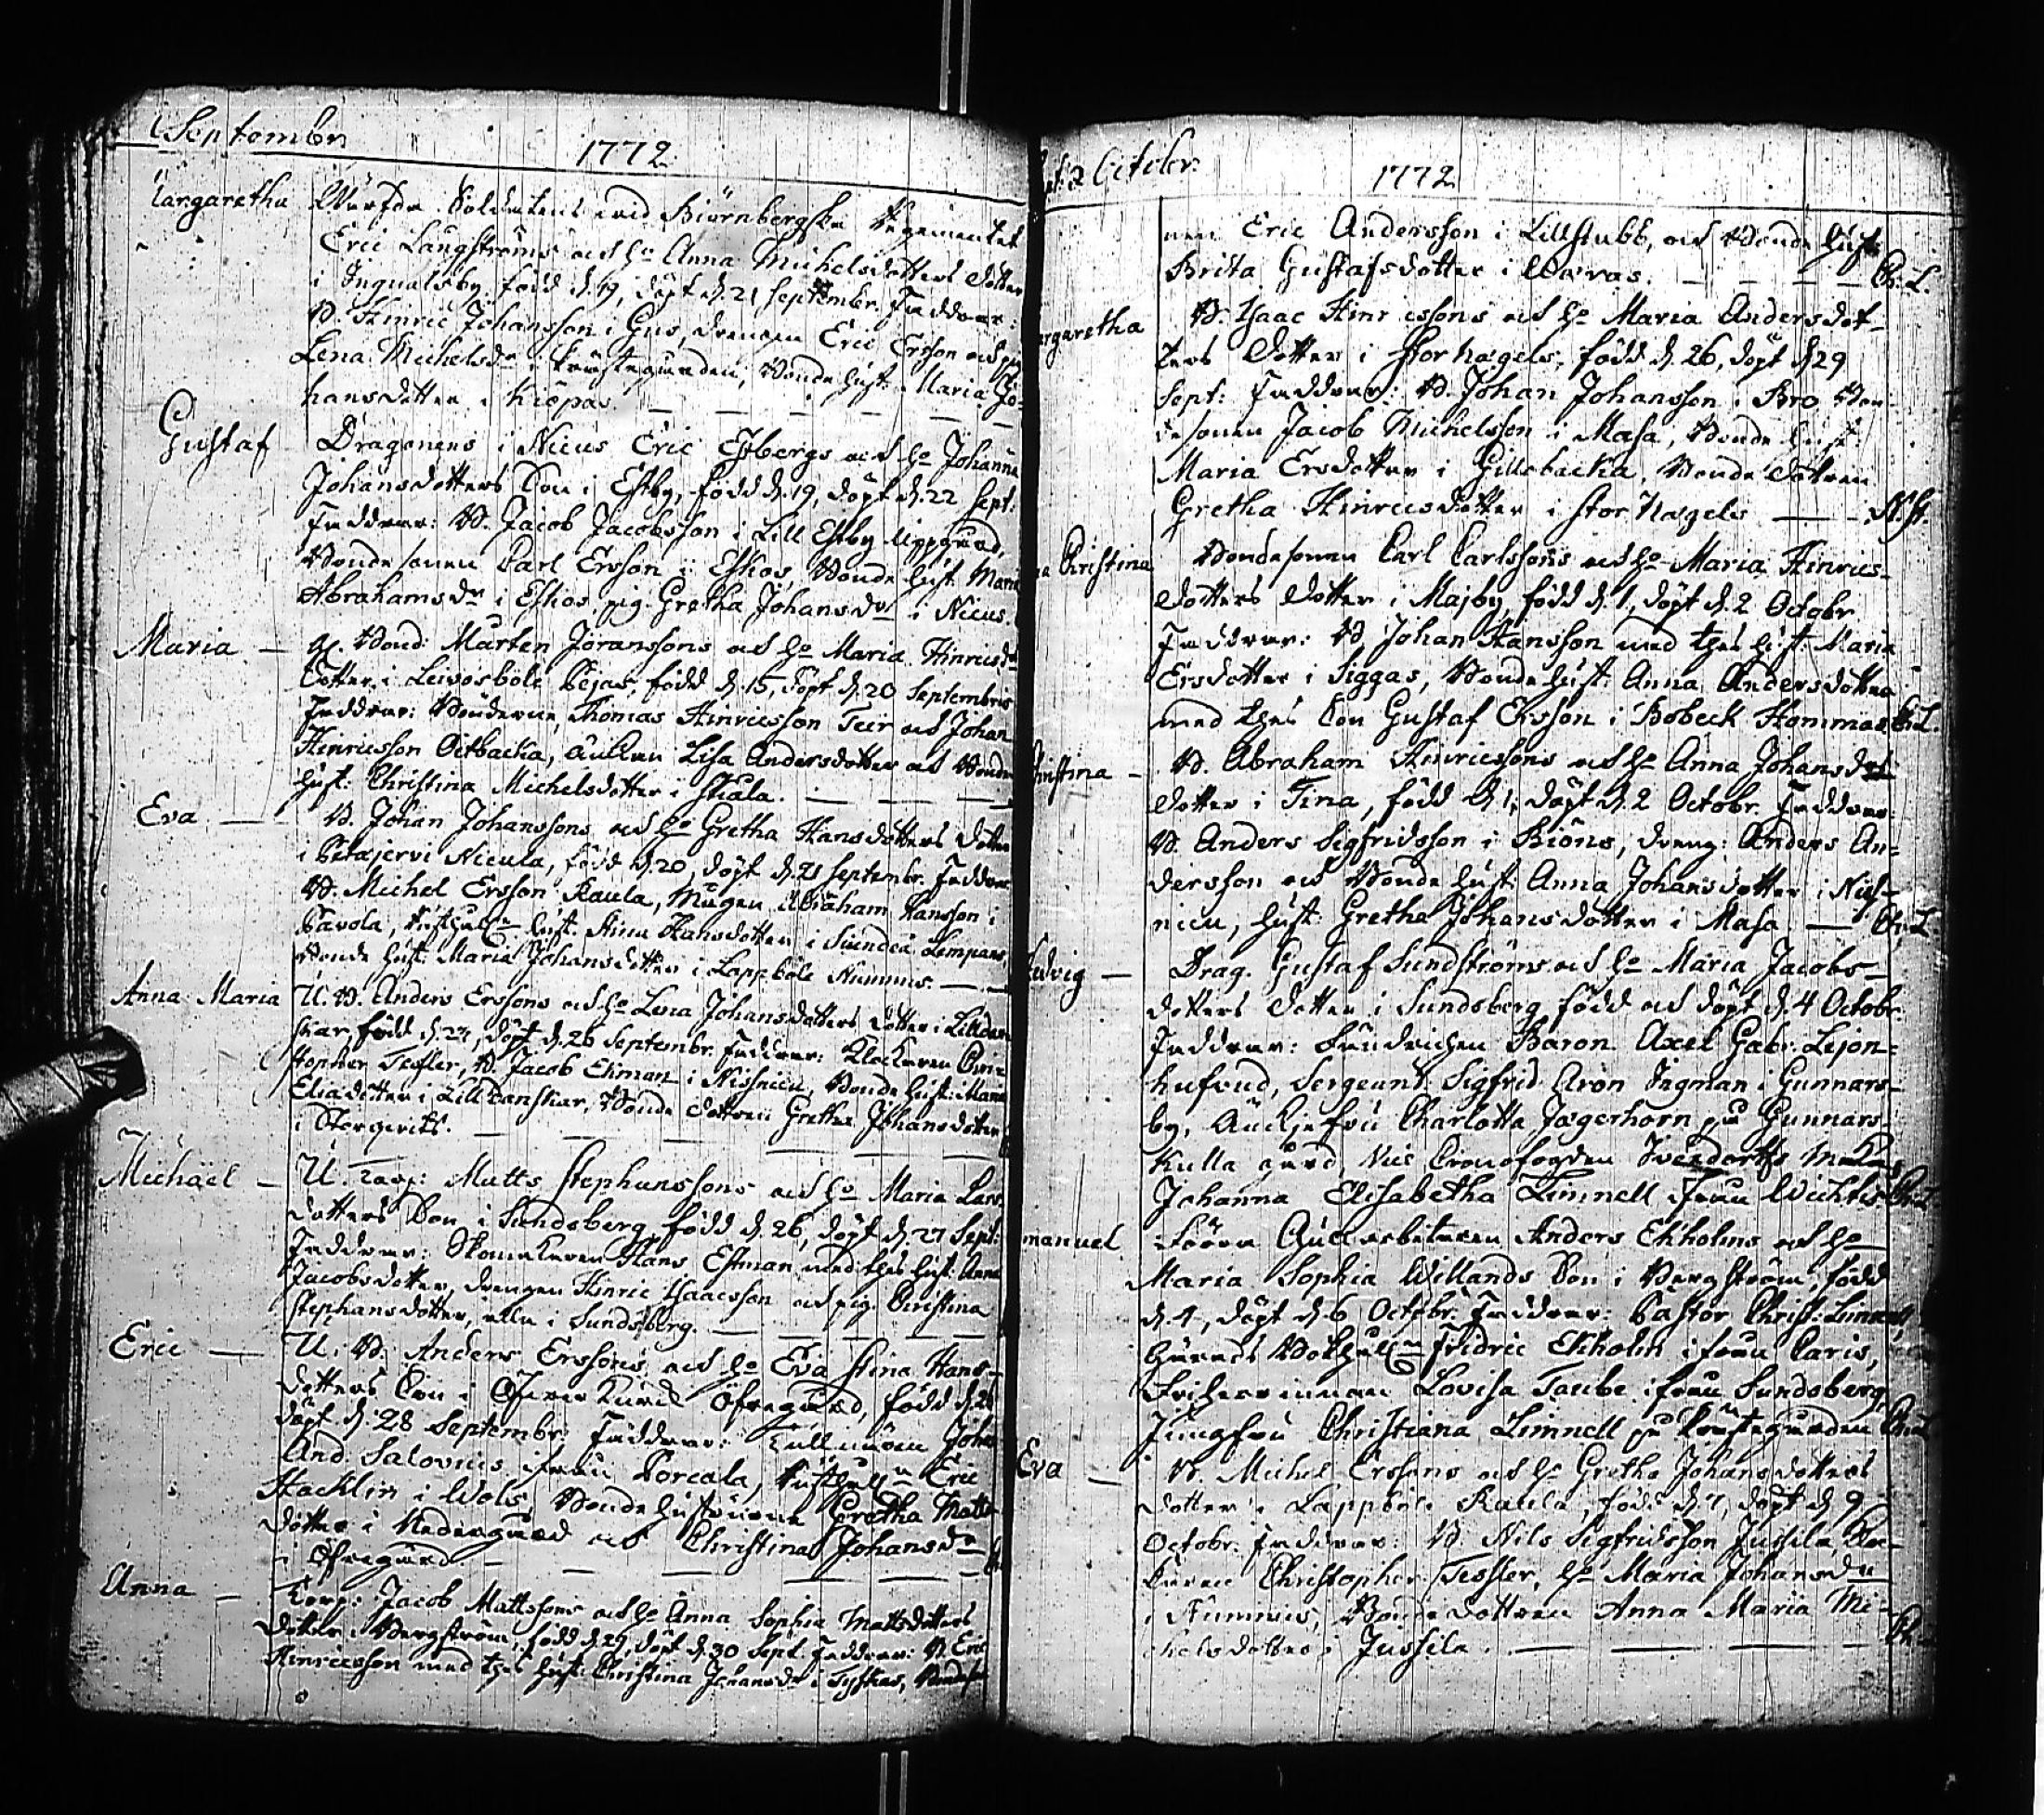 Septembr
1772
Margaretha Soldatens wid Biörnebergska Regementet
Eric Laugströms och h:o Anna Michelsdotters dotter
i Ingvalsby, född d. 19, döpt d. 21 Septembr. Faddrar:
B. Hinric Johansson i Gus, drengen Eric Ersson och pig.
Lena Michelsd:r i Prestegården, Bonde hust. Maria Jo-
hansdotter i Kiöpas.
Gustaf Dragonens i Nicus Eric Estbergs och h:o Johanna
Johansdotters Son i Estby, född d. 19, döpt d. 22 Sept:
Faddrar: B. Jacob Jacobsson i Lill Estby Uppgård,
Bondesonen Carl Ersson i Eskos, Bonde hust. Maria
Abrahamsd:r i Eskos, pig. Gretha Johansd:r i Nicus.
Maria Bond: Mårten Jöranssons och h:o Maria Hinricsd:rs
Dotter i Lewosböle Pejas, född d. 15, döpt d. 20 Septembris
Faddrar: Bönderne Thomas Hinricsson Teir och Johan
Hinricsson Oitbacka, änkan Lisa Andersdotter och Bonde
hust: Christina Michelsdotter i Skiala.
Eva B. Johan Johanssons och h:o Gretha Hansdotters dotter
i Petajervi Nicula, född d. 20, döpt d. 21 Septembr. Faddrar:
B. Michel Ersson Raula, Mågen Abraham Hansson i
Pavola, hust. Stina Hansdotter i Siundeå Lempans,
Bonde hust: Maria Johansdotter i Lappböle Nummis.
Anna Maria U. B. Anders Erssons och h:o Lena Johansdotters dotter i Lilldan-
skar, född d. 24, döpt d. 26 Septembr. Faddrar: Klockaren Chri-
stopher Tessler, B. Jacob Ekman i Nissnicu, Bonde hust: Maria
Eliædotter i Lill Danskar, Bonde dottren Gretha Johansdotter
i Storgerits.
Michaël U. Matts Stephanssons och h:o Maria Lars-
dotters Son i Sundsberg, född d. 26, döpt d. 27 Sept:
Faddrar: Skomakaren Hans Estman med thes hust: Anna
Jacobsdotter, drengen Hinric Isaacsson och pig. Christina
Stephansdotter, alla i Sundsberg.
Eric U. B. Anders Erssons och h:o Eva Stina Hans-
dotters Son i Öfver Kurck Öfregård, född d. 26
döpt d. 28 Septembr. Faddrar: Johan
And. Salovius ifrån Porcala, Eric
Hacklin i Wols, Bonde hustrurne Gretha Matts-
dotter i Nedergård och Christina Johansd:r
i Öfregård.
Anna Torp: Jacob Mattssons och h:o Anna Sophia Mattsdotters
dotter i Bergström, född d. 29, döpt d. 30 Sept. Faddrar: B. Eric
Hinricsson med thes hust: Christina Johansd:r i Tyskas, Bondeso-
Sept: & October
1772
nen Eric Andersson i Lillstubb, och Bonde hust:
Brita Gustafsdotter i Waras. Ch. L.
Margaretha B. Isaac Hinricssons och h:o Maria Andersdot-
ters Dotter i Stor Nægels, född d. 26, döpt d. 29
Sept: Faddrar: B. Johan Johansson i Bro, Bon-
desonen Jacob Michelsson i Masa, Bonde hust
Maria Ersdotter i Gillobacka, Bonde dottren
Gretha Hinricsdotter i Stor Nægels
Christina Bondesonen Carl Carlssons och h:o Maria Hinrics-
dotters dotter i Majby, född d. 1, döpt d. 2 Octobr
Faddrar: B. Johan Hansson med thes hust: Maria
Ersdotter i Siggas, Bonde hust: Anna Andersdotter
med thes Son Gustaf Ersson i Bobeck Hommas Ch. L.
Christina B. Abraham Hinricssons och h:o Anna Johansd:rs
dotter i Tina, född d. 1, döpt d. 2 Octobr. Faddrar:
B. Anders Sigfridsson i Biöns, dreng: Anders An-
dersson och Bonde hust: Anna Johansdotter i Niss-
nicu, hust: Gretha Johansdotter i Masa. Ch. L.
Hedvig Drag. Gustaf Sundströms och h:o Maria Jacobs-
dotters dotter i Sundsberg född och döpt d. 4 Octobr.
Faddrar: Fändrichen Baron Axel Gabr. Lejon-
hufvud, Sergeant Sigfrid Aron Ingman i Gunnars-
by, Änkjefru Charlotta Jægerhorn på Gunnars-
kulla gård,
Johanna Elisabetha Limnell ifrån Wichtis Ch. L.
Emanuel Anders Ekholms och h:o
Maria Sophia Willands Son i Bergström, född
d. 4, döpt d. 6 Octobr. Faddrar: Pastor Christ: Limnell,
Fridric Ekholm ifrån Caris,
Friherrinnan Lovisa Taube ifrån Sundsberg,
Jungfru Christiana Limnell på Prestegården Ch. L.
Eva B. Michel Erssons och h:o Gretha Johansdotters
dotter i Lappböle Raula, född d. 7, döpt d. 9
Octobr. Faddrar: B. Nils Sigfridsson Jussila, Kloc-
karen Christopher Tessler, h:o Maria Johansd:r
i Nummis, Bonde dottren Anna Maria Mi-
chelsdotter i Jussila.